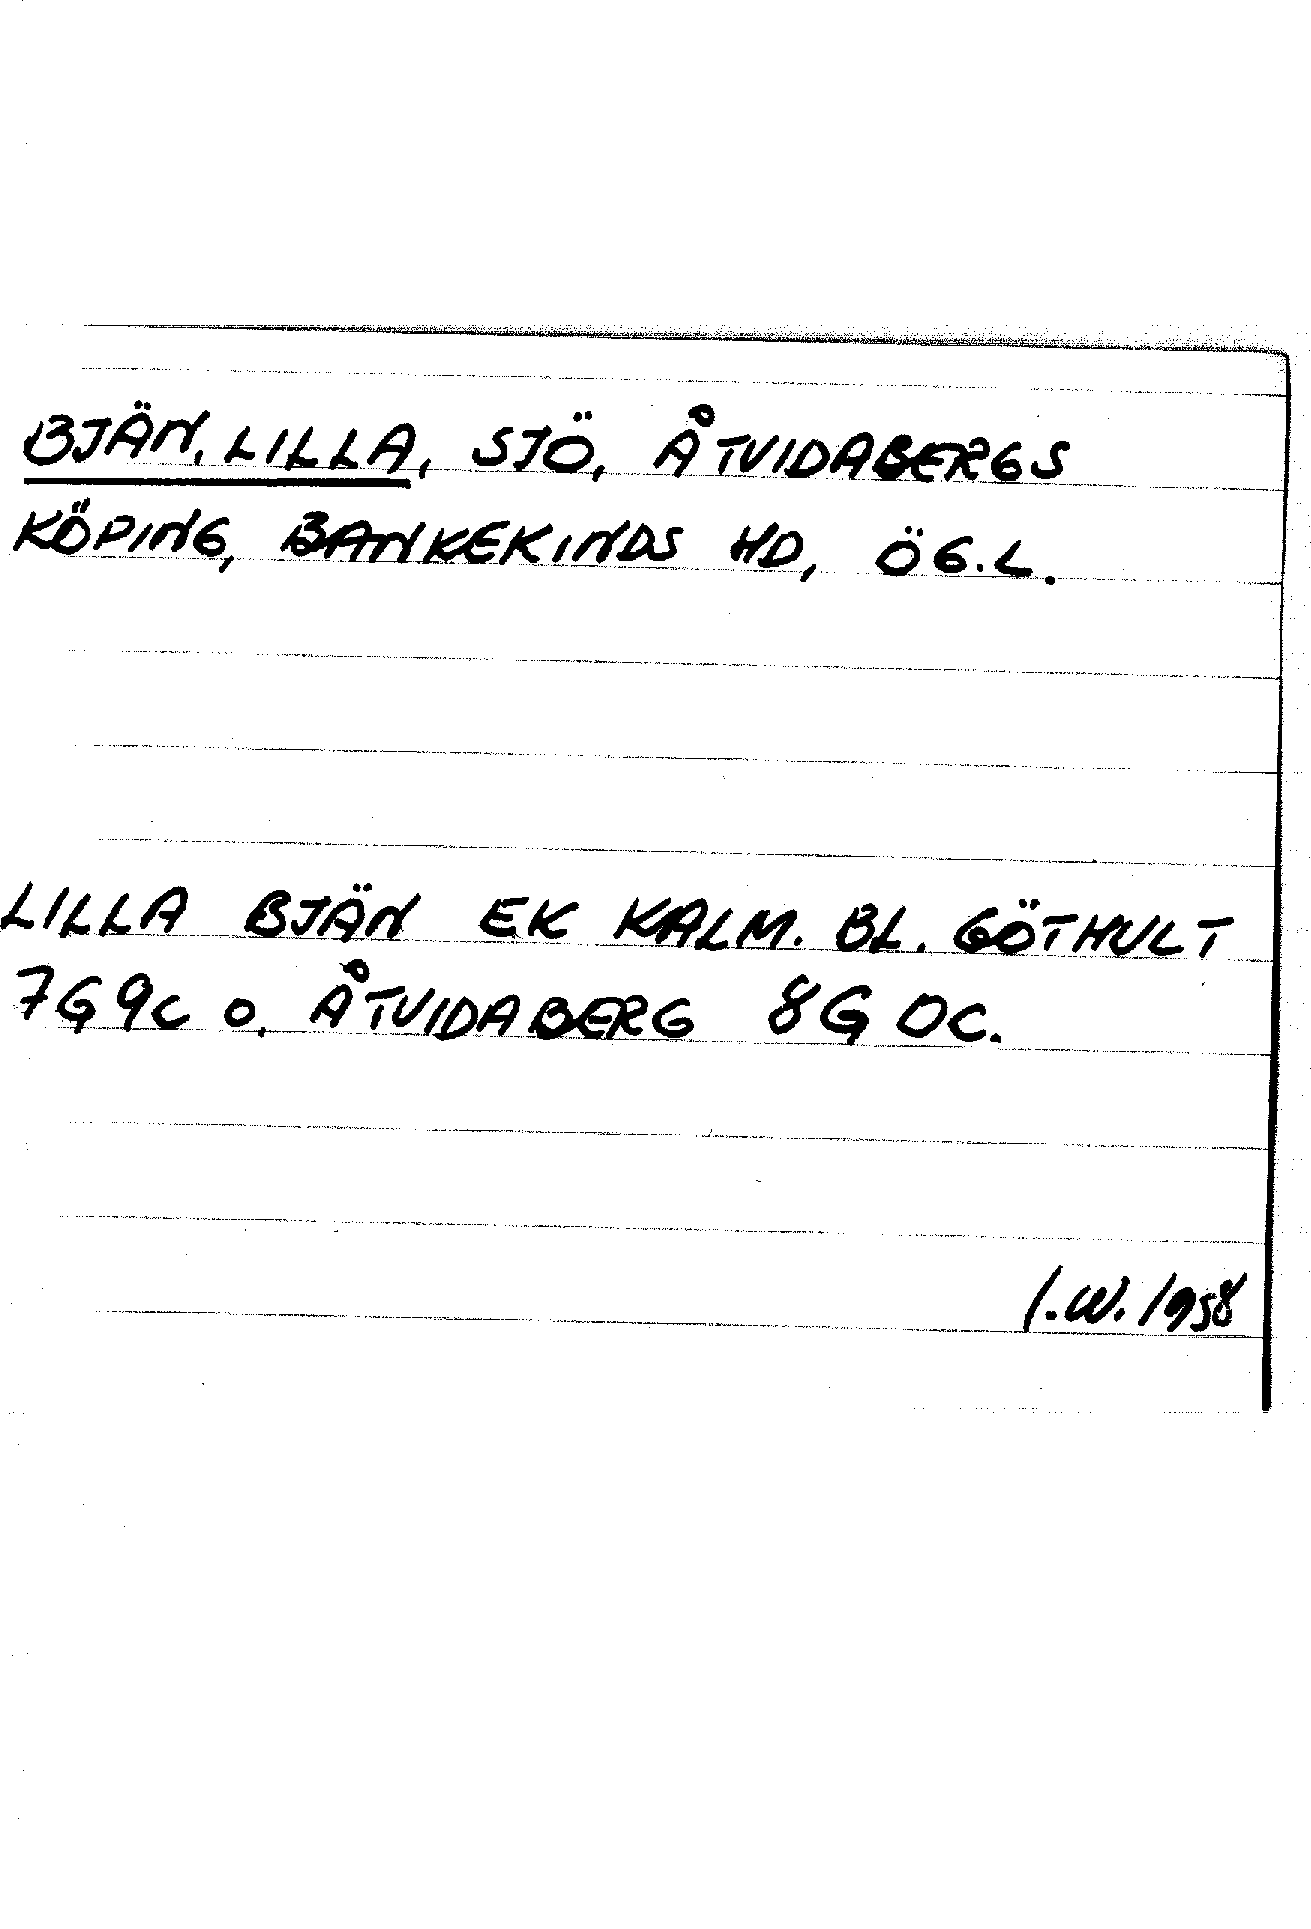 BJÄN, LILLA, SJÖ, ÅTVIDABERGS
KÖPING, BANKEKINDS HD, ÖG.L.
LILLA BJÄN EK KALM. BL. GÖTHULT
7G 9c o. ÅTVIDABERG 8G 0c.
I.W. 1958